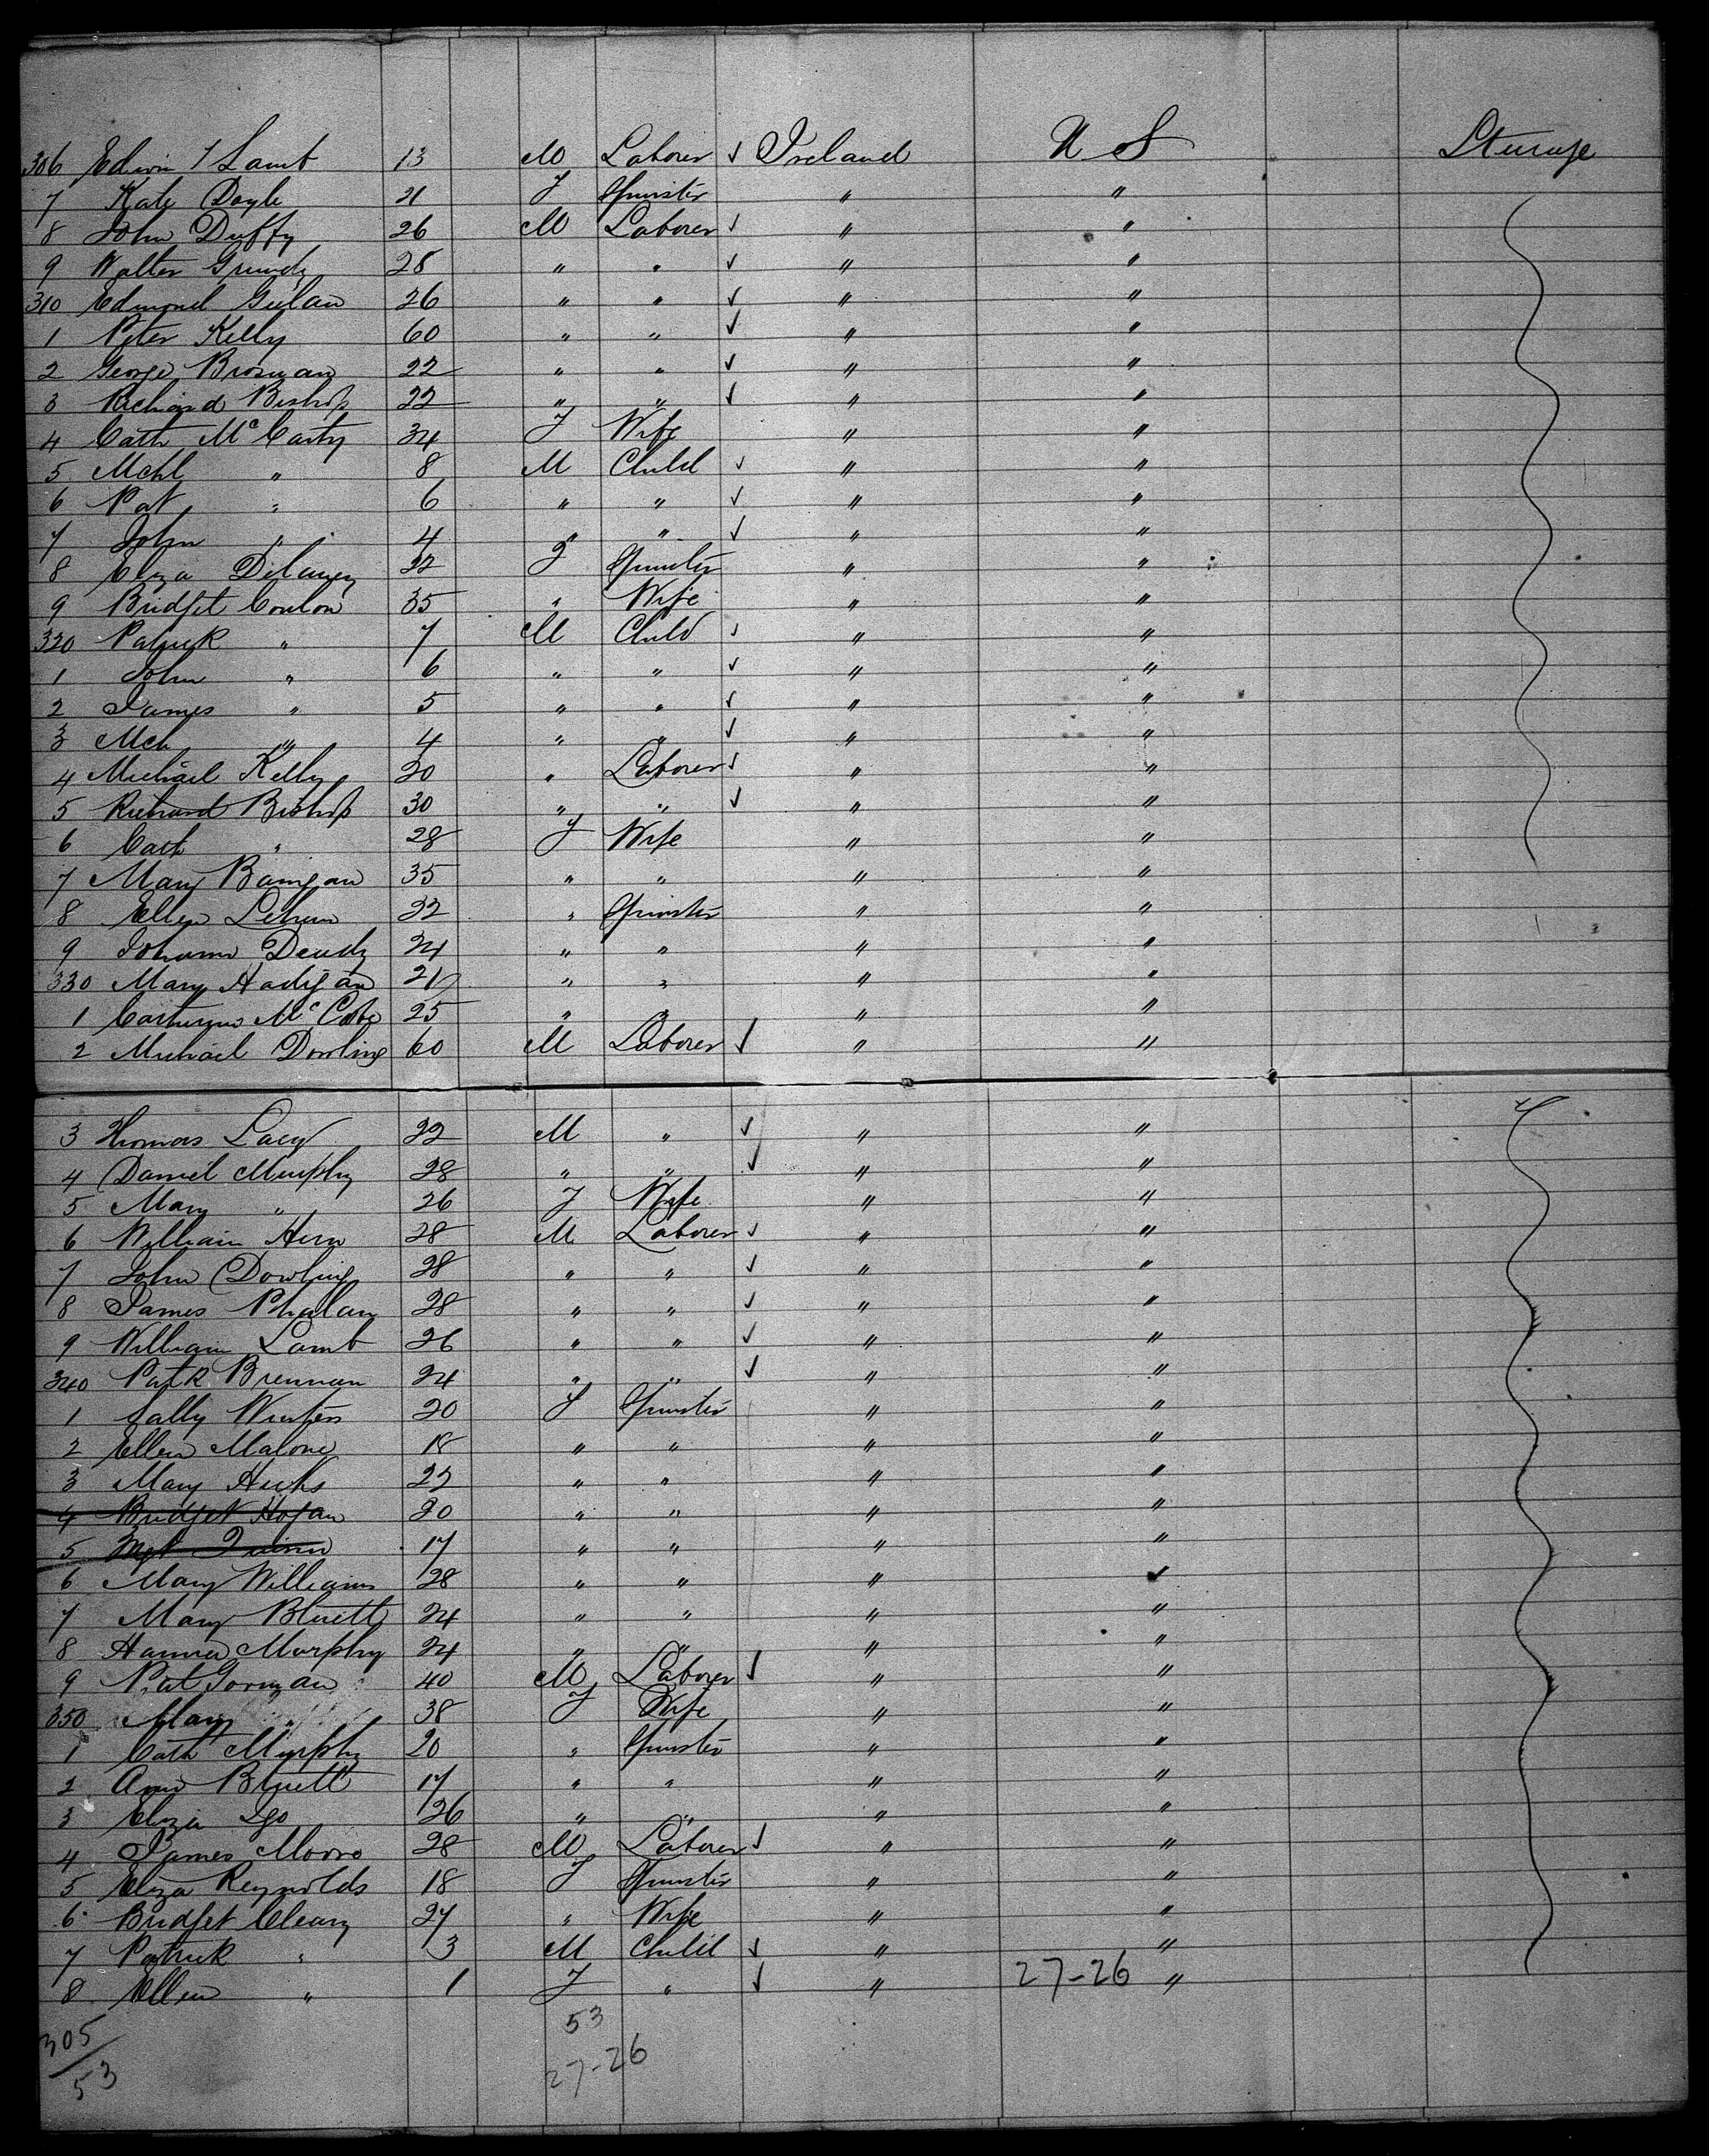 306 Edwin Lamb 13 M Laborer ✓ Ireland U S Steerage
7 Kate Doyle 21 F Spinster " "
8 John Duffy 26 M Laborer ✓ " "
9 Walter Grundy 28 " " ✓ " "
310 Edmond 26 " " ✓ " "
1 Peter Kelly 60 " " ✓ " "
2 George Brosnan 22 " " ✓ " "
3 Richard Bishop 22 " " ✓ " "
4 Cath McCarty 34 F Wife " "
5 Mchl " 8 M Child ✓ " "
6 Pat " 6 " " ✓ " "
7 John " 4 " " ✓ " "
8 Eliza Delaney 22 F Spinster " "
9 Bridget Conlon 35 " Wife " "
320 Patrick " 7 M Child ✓ " "
1 John " 6 " " ✓ " "
2 James " 5 " " ✓ " "
3 Mch " 4 " " ✓ " "
4 Michael Kelly 20 " Laborer ✓ " "
5 Richard Bishop 30 " " ✓ " "
6 Cath " 28 F Wife " "
7 Mary 35 " " " "
8 Ellen 22 " Spinster " "
9 Johanna 24 " " " "
330 Mary Hadigan 21 " " " "
1 McCabe 25 " " " "
2 Michael Dowling 60 M Laborer ✓ " "
3 Thomas Lacy 22 M " ✓ " "
4 Daniel Murphy 28 " " ✓ " "
5 Mary " 26 F Wife " "
6 William Hern 28 M Laborer ✓ " "
7 John Dowling 28 " " ✓ " "
8 James Phalan 28 " " ✓ " "
9 William Lamb 26 " " ✓ " "
340 Patk Brennan 24 " " ✓ " "
1 Sally Winters 20 F Spinster " "
2 Ellen Malone 18 " " " "
3 Mary Hicks 22 " " " "
4 Bridget Hogan 20 " " " "
5 Mgt Quinn 17 " " " "
6 Mary Williams 28 " " " "
7 Mary Bluett 24 " " " "
8 Hanna Murphy 24 " " " "
9 Pat Gorman 40 M Laborer ✓ " "
350 Mary " 38 F Wife " "
1 Cath Murphy 20 " Spinster " "
2 Ann Bluett 17 " " " "
3 Eliza Igo 26 " " " "
4 James 28 M Laborer ✓ " "
5 Eliza Reynolds 18 F Spinster " "
6 Bridget Cleary 27 " Wife " "
7 Patrick " 3 M Child ✓ " "
8 Ellen " 1 F " ✓ " 27-26 "
305 53
53 27-26